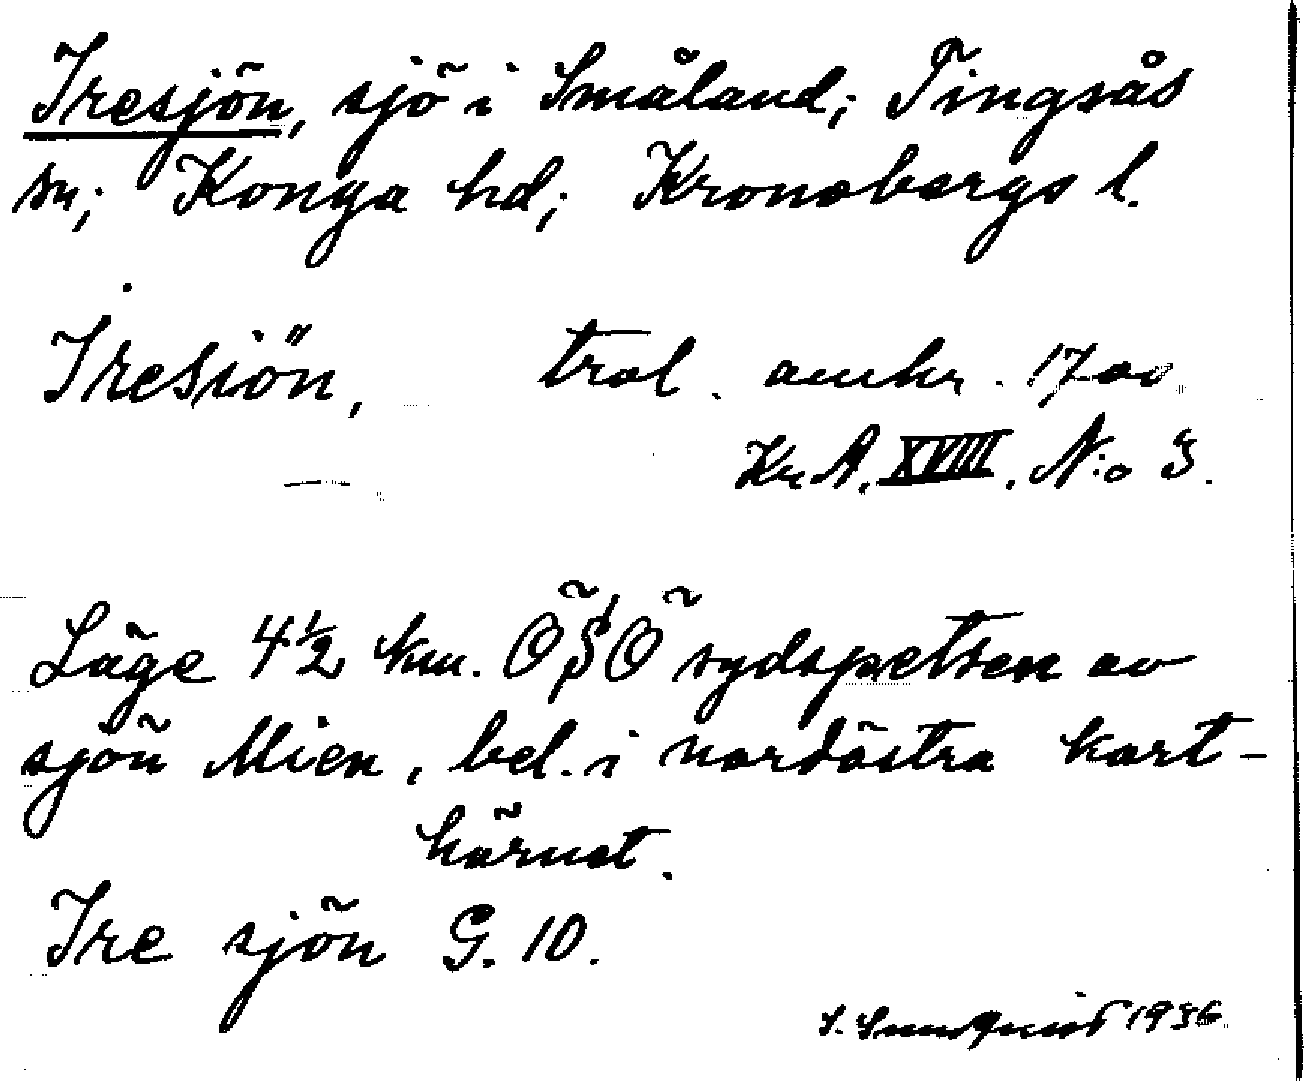 Iresjön, sjö i Småland; Tingsås
sn; Konga hd; Kronobergs l.
Iresiön, trol. omkr. 1700
Kr.A. XVIII. N:o 3.
Läge 4½ km. ÖSÖ sydspetsen av
sjön Mien, bel. i nordöstra kart-
hörnet.
Ire sjön G. 10.
S. 1936